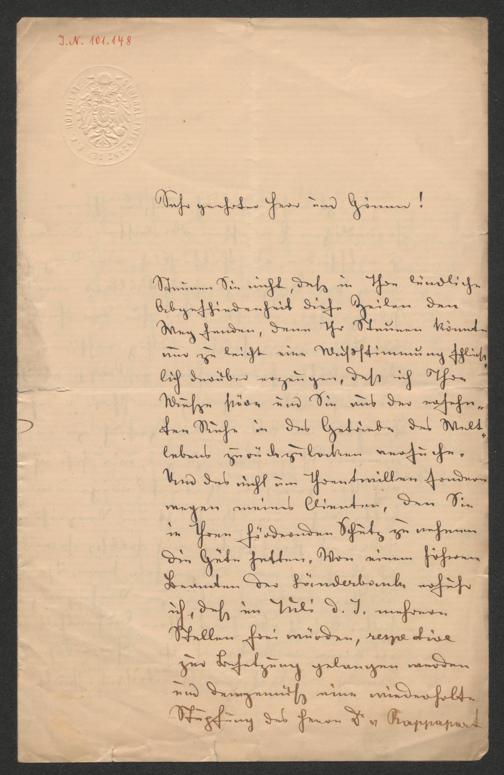 I.N. 101.148
Sehr geehrter Herr und Gönner!
Staunen Sie nicht, daß in Ihre ländliche
Abgeschiedenheit diese Zeilen den
Weg fanden, denn Ihr Staunen könnte
nur zu leicht eine Mißstimmung schließ-
lich darüber erzeugen, daß ich Ihre
Muse störe und Sie aus der ersehn-
ten Ruhe in das Getriebe des Welt-
lebens zurückzulocken versuche.
Und das nicht um Ihretwillen sondern
wegen meines Clienten, den Sie
in Ihren fördernden Schutz zu nehmen
die Güte hatten. Von einem höheren
Beamten der Länderbank erfuhr
ich, daß im Juli d. J. mehrere
Stellen frei würden, respective
zur Besetzung gelangen werden
und demgemäß eine wiederholte
des Herrn Dr v Rappaport